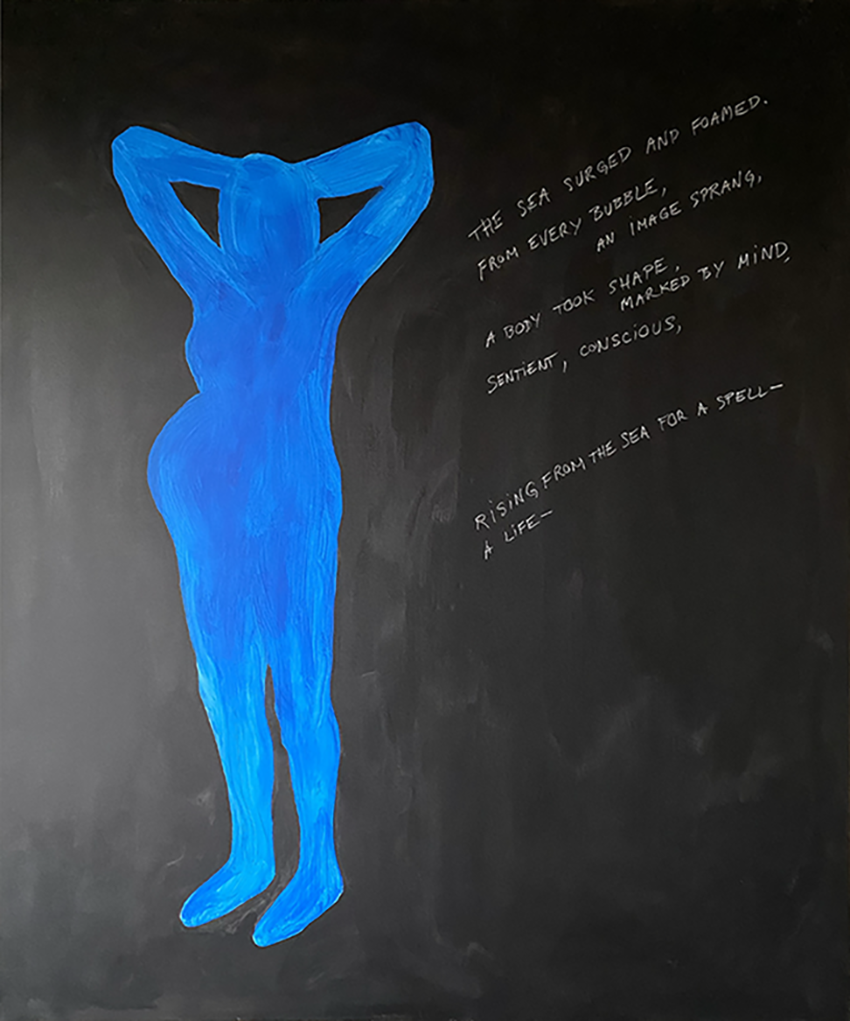 THE SEA SURGED AND FOAMED.
FROM EVERY BUBBLE,
AN IMAGE SPRANG,
A BODY TOOK SHAPE,
MARKED BY MIND,
SENTIENT, CONSCIOUS,
RISING FROM THE SEA FOR A SPELL—
A LIFE—